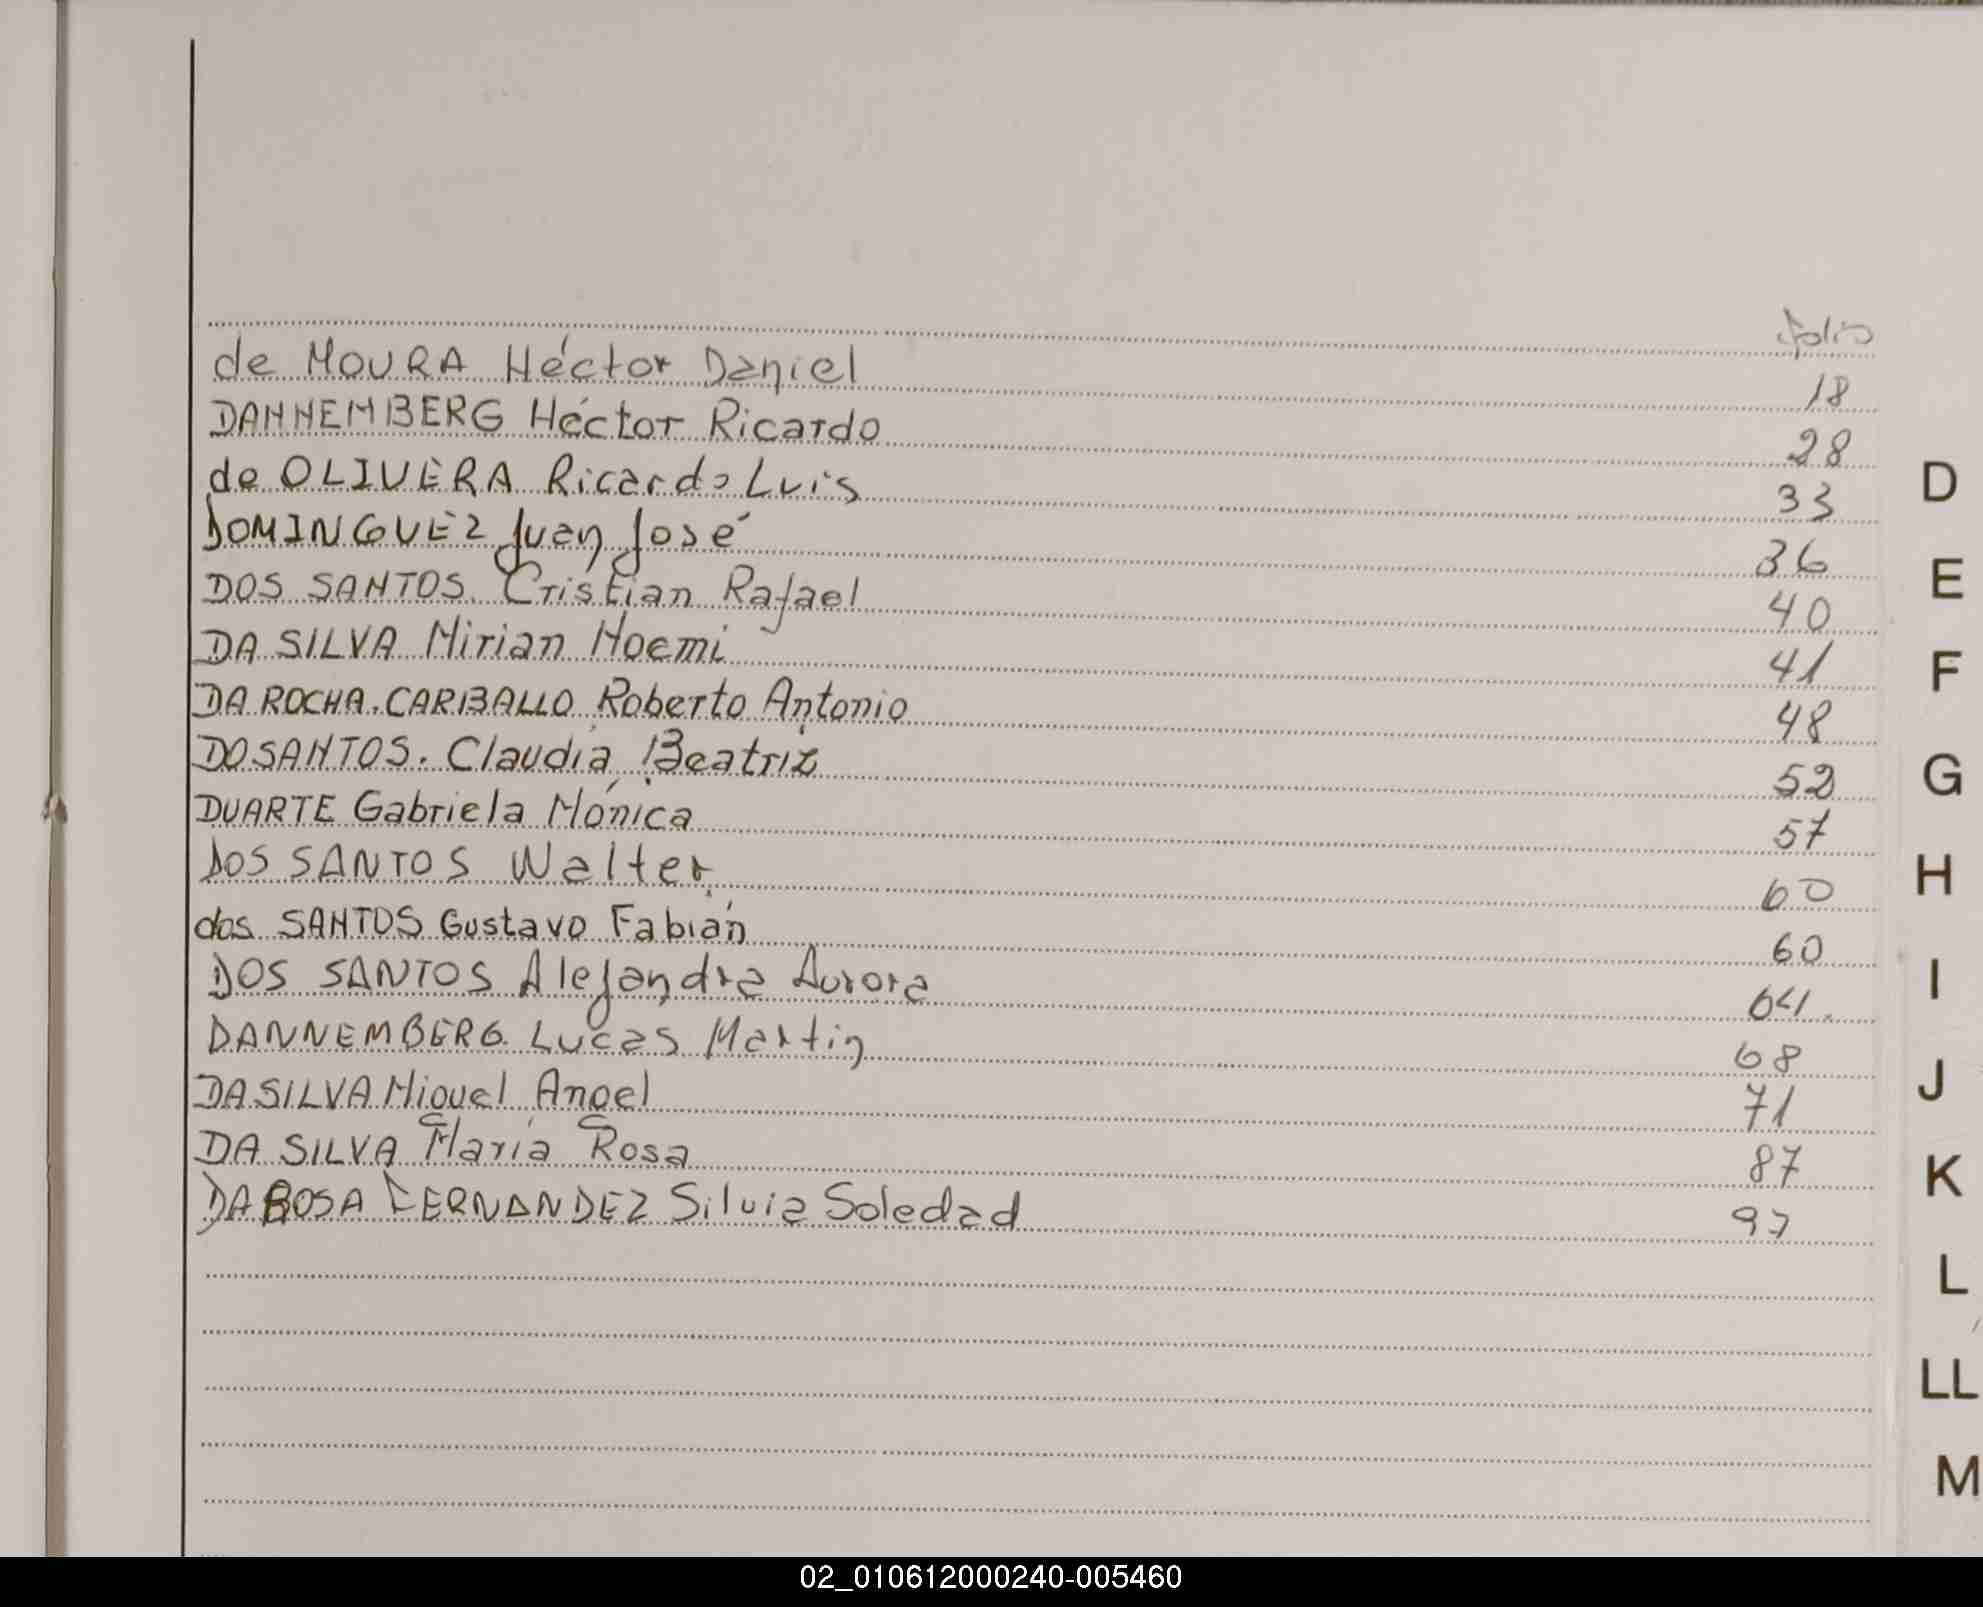 folio
de MOURA Héctor Daniel 18
DANNEMBERG Héctor Ricardo 28
de OLIVERA Ricardo Luis 33
DOMINGUEZ Juan José 36
DOS SANTOS. Cristian Rafael 40
DA SILVA Mirian Noemi 41
DA ROCHA. CARBALLO Roberto Antonio 48
DOSANTOS. Claudia Beatriz 52
DUARTE Gabriela Mónica 57
DOS SANTOS Walter 60
dos SANTOS Gustavo Fabián 60
DOS SANTOS Alejandra Aurora 64
DANNEMBERG. Lucas Martin 68
DA SILVA Miguel Angel 71
DA SILVA María Rosa 87
DA ROSA FERNANDEZ Silvia Soledad 97
D
E
F
G
H
I
J
K
L
LL
M
02_010612000240-005460